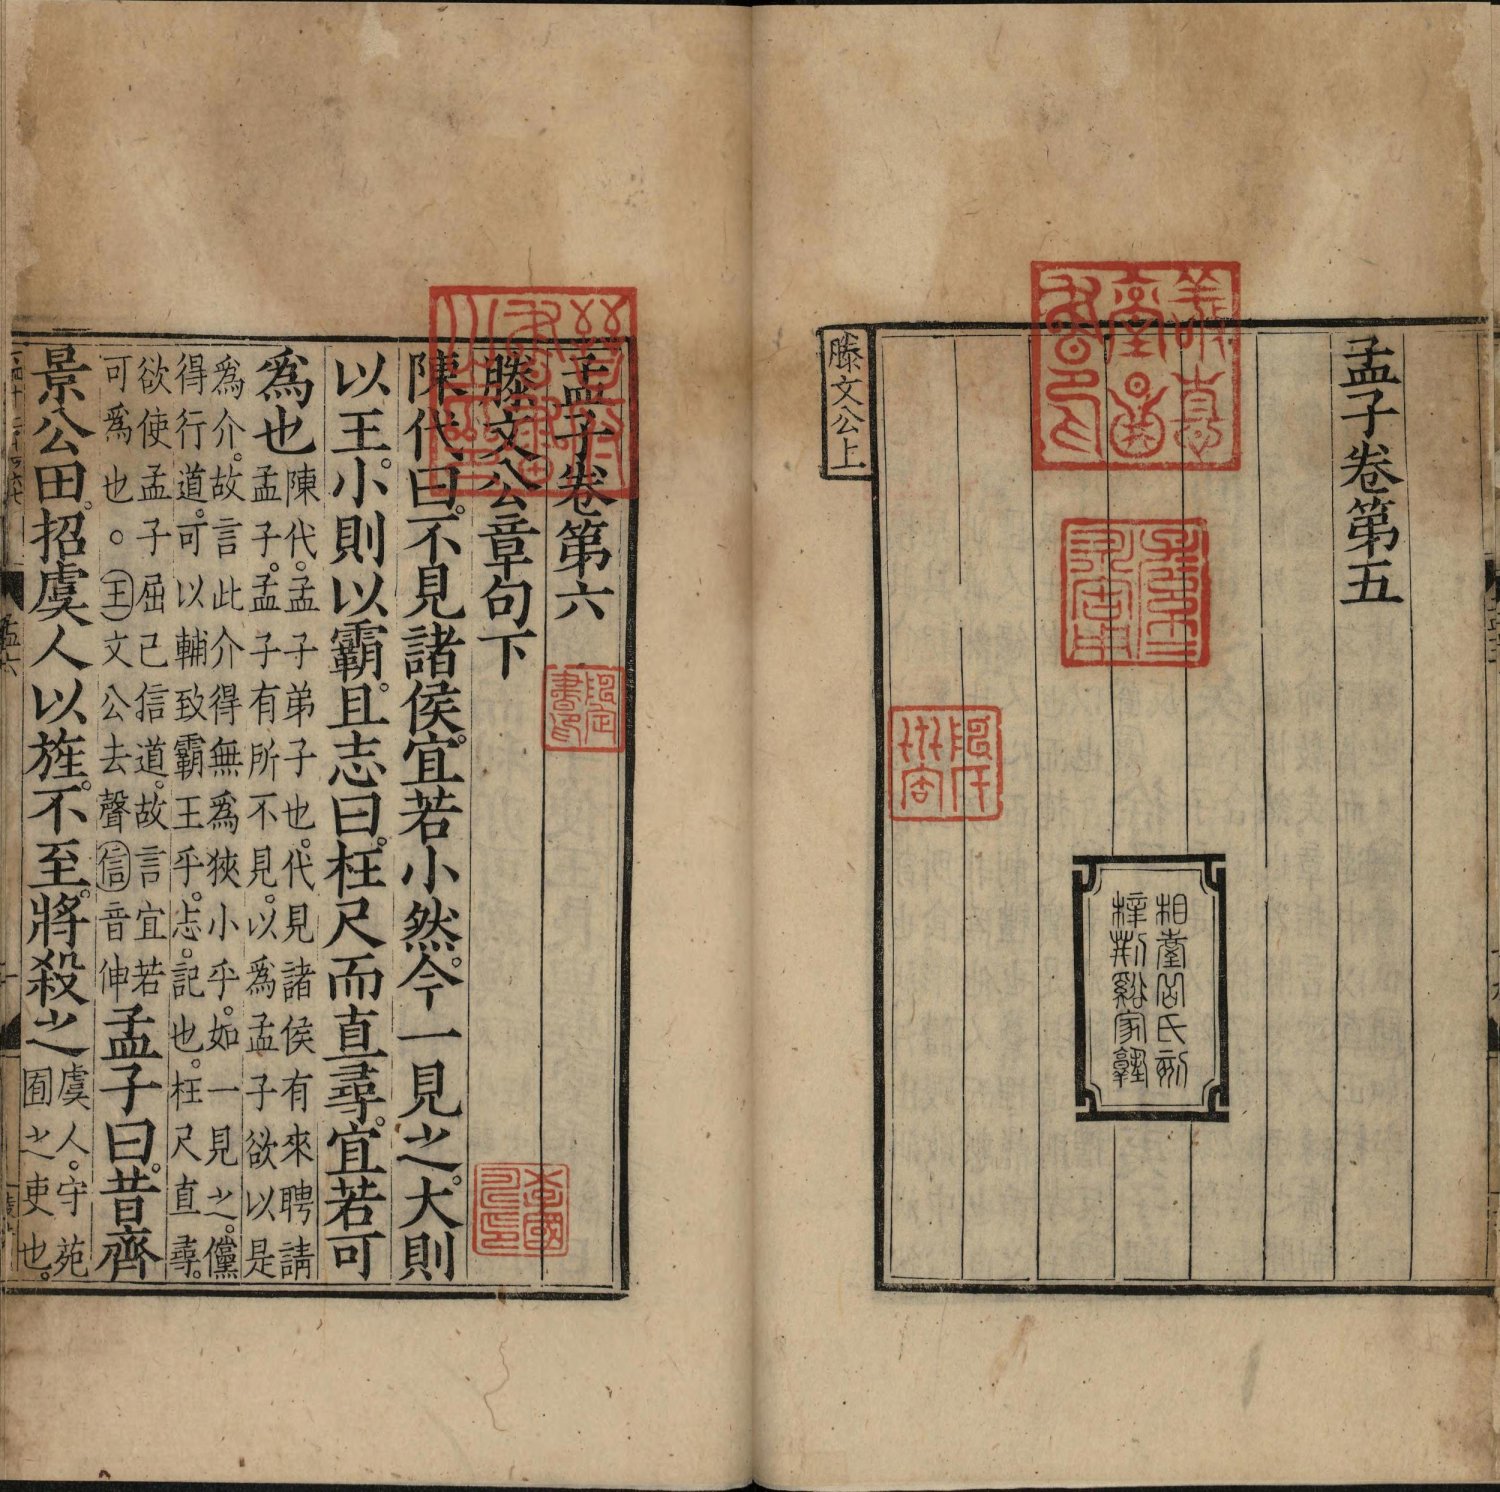 孟子卷第五
相臺岳氏刻
梓荊谿家塾
滕文公上
孟子卷第六
滕文公章句下
陳代曰。不見諸侯。宜若小然。今一見之。大則
以王。小則以霸。且志曰。枉尺而直尋。宜若可
爲也
陳代。孟子弟子也。代見諸侯有來聘請
孟子。孟子有所不見。以爲孟子欲以是
爲介。故言此介得無爲狹小乎。如一見之。儻
得行道。可以輔致霸王乎。志。記也。枉尺直尋。
欲使孟子屈己信道。故言宜若
可爲也。王文公去聲信音伸
孟子曰。昔齊
景公田。招虞人以旌。不至。將殺之
虞人。守苑
囿之吏也。